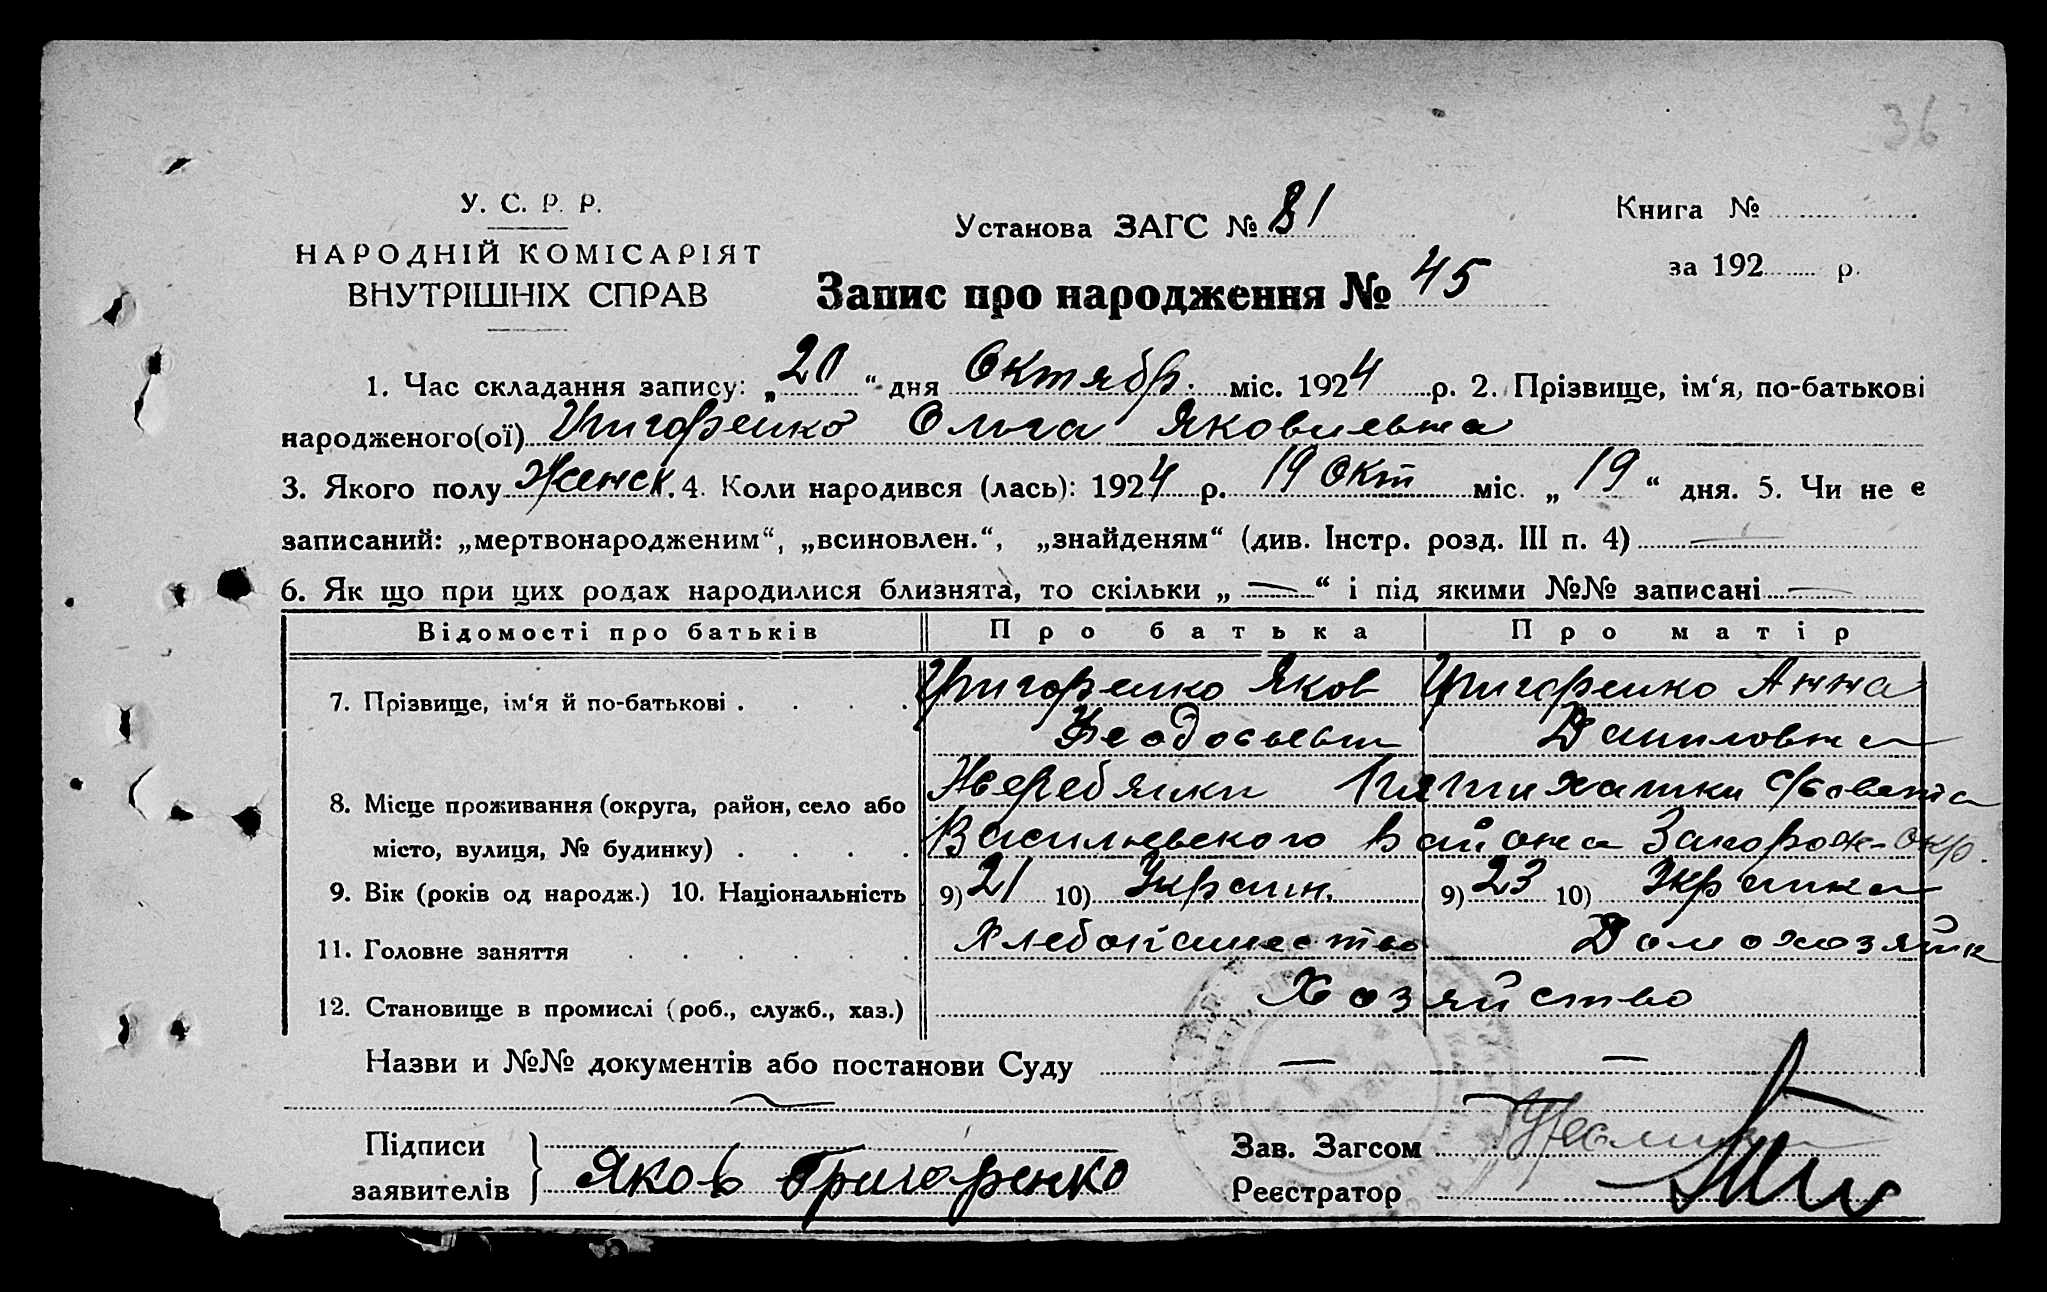 36
У. С. Р. Р.
НАРОДНІЙ КОМІСАРІЯТ
ВНУТРІШНІХ СПРАВ
Установа ЗАГС № 81
Книга №
за 192 р.
Запис про народження № 45
1. Час складання запису: „20“ дня Октябр. міс. 1924 р. 2. Прізвище, ім‘я, по-батькові
народженого(ої) Григоренко Ольга Яковлевна
3. Якого полу Женск. 4. Коли народився (лась): 1924 р. 19 Окт міс. „19“ дня. 5. Чи не є
записаний: „мертвонародженим“, „всиновлен.“, „знайденям“ (див. Інстр. розд. III п. 4) —
6. Як що при цих родах народилися близнята, то скільки „—“ і під якими №№ записані —
Відомості про батьків Про батька Про матір
7. Прізвище, ім‘я й по-батькові . . . . Григоренко Яков Григоренко Анна
Феодосьевич Даниловна
8. Місце проживання (округа, район, село або Жеребянки Пятихатки с/совета
місто, вулиця, № будинку) . . . . Васильевского Района Запорож. окр.
9. Вік (років од народж.) 10. Національність 9) 21 10) Украин. 9) 23 10) Украинка
11. Головне заняття . . . . . . Хлебопашество Домохозяйк
12. Становище в промислі (роб., служб., хаз.) Хозяйство
Назви и №№ документів або постанови Суду — —
Підписи
заявителів } Яковъ Григоренко
Зав. Загсом
Реєстратор